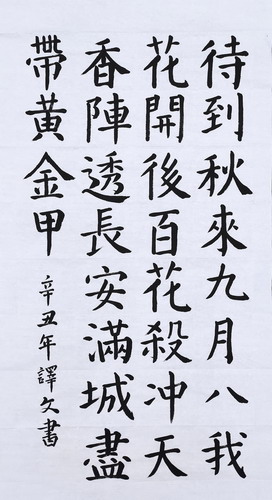 待到秋來九月八我
花開後百花殺冲天
香陣透長安滿城盡
帶黃金甲
辛丑年譯文書